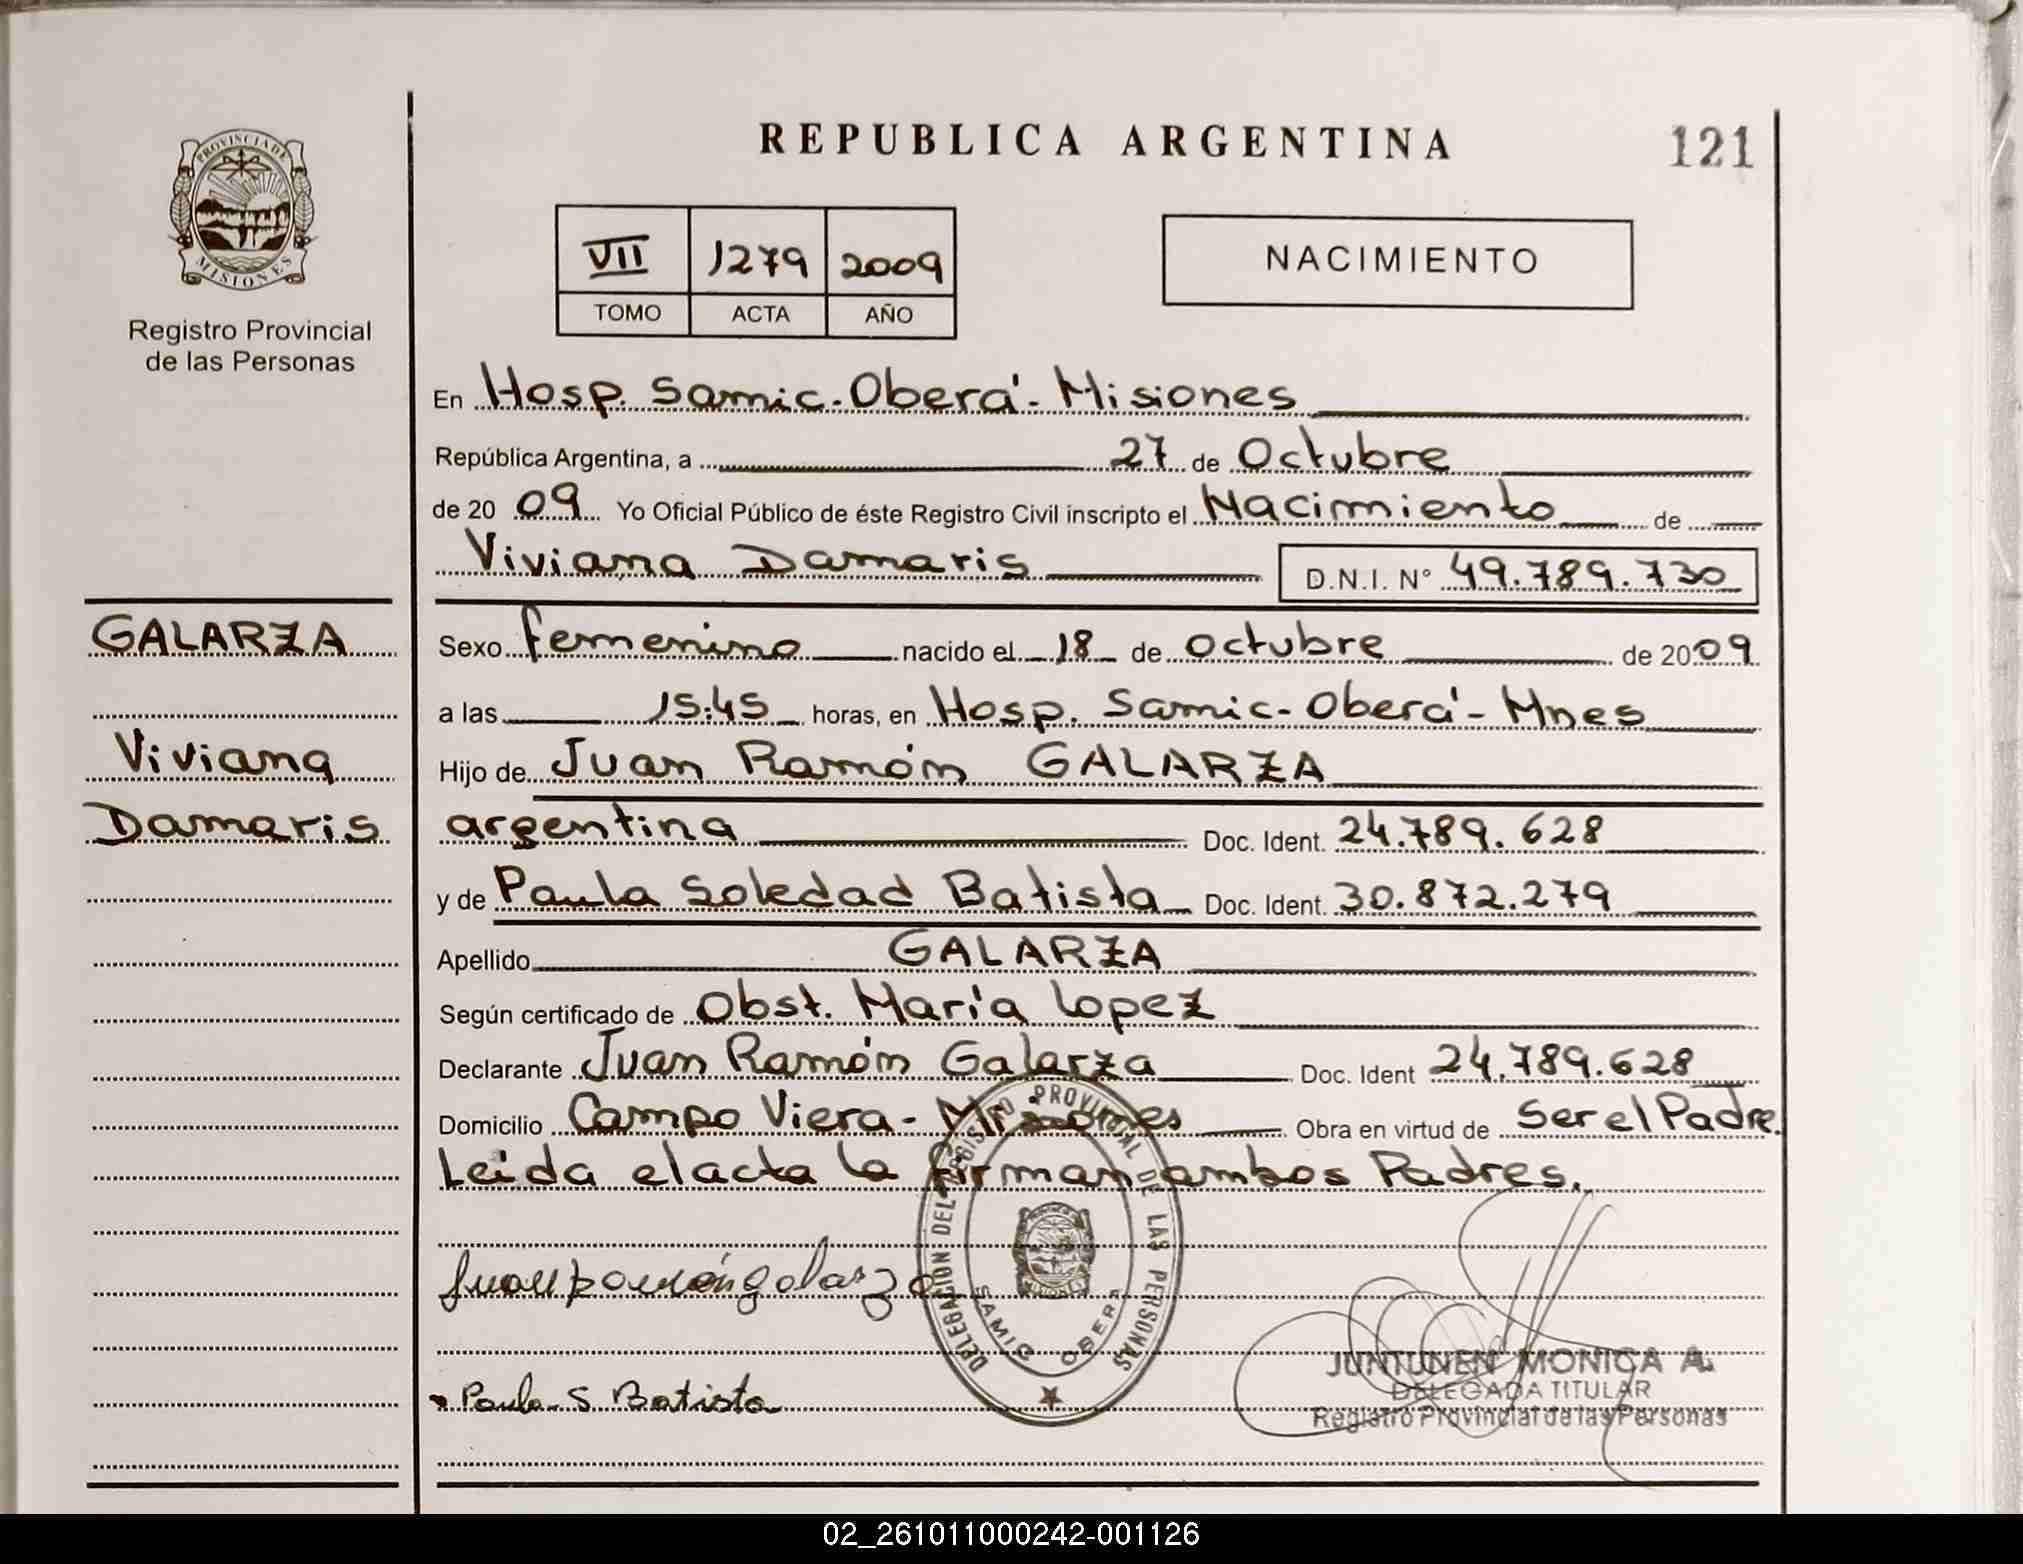 REPUBLICA ARGENTINA
121
PROVINCIA DE
MISIONES
Registro Provincial
de las Personas
VII 1279 2009
TOMO ACTA AÑO
NACIMIENTO
En Hosp. Samic. Oberá - Misiones
República Argentina, a 27 de Octubre
de 20 09 Yo Oficial Público de éste Registro Civil inscripto el Nacimiento de
Viviana Damaris D.N.I. N° 49.789.730
GALARZA
Viviana
Damaris
Sexo femenino nacido el 18 de octubre de 2009
a las 15:45 horas, en Hosp. Samic - Oberá - Mnes
Hijo de Juan Ramón GALARZA
argentina Doc. Ident. 24.789.628
y de Paula Soledad Batista Doc. Ident. 30.872.279
Apellido GALARZA
Según certificado de Obst. María Lopez
Declarante Juan Ramón Galarza Doc. Ident 24.789.628
Domicilio Campo Viera - Misiones Obra en virtud de Ser el Padre.
Leida el acta la firman ambos Padres.
DELEGACION DEL REGISTRO PROVINCIAL DE LAS PERSONAS
SAMIC OBERA
MISIONES
Juan Ramón galarza
Paula S Batista
JUNTUNEN MONICA A.
DELEGADA TITULAR
Registro Provincial de las Personas
02_261011000242-001126